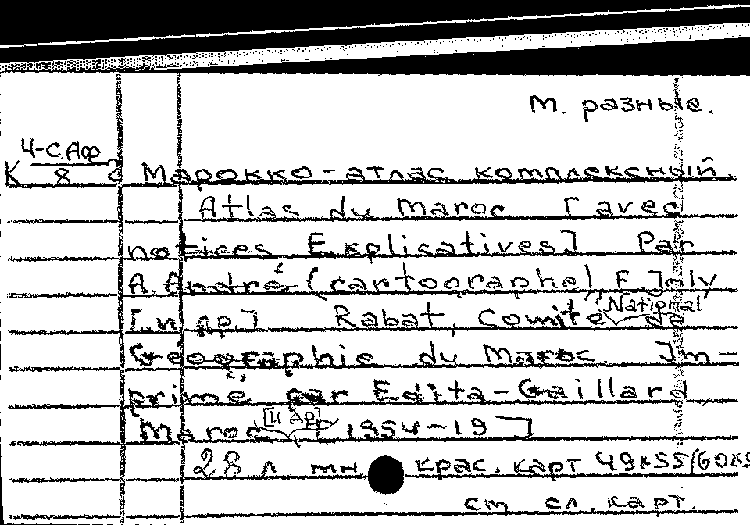 М. разные.
4-С.Аф
К 8
Марокко-атлас комплексный.
Atlas du Maroc [avec
notices Explicatives] Par
A. André (cartographe) F Joly
[и др.] Rabat, Comité National de
Géographie du Maroc Im-
primé par Edita-Gaillard
Maroc [и др] 1954-19 ]
28 л мн крас. карт 49х55(60х
см сл. карт.